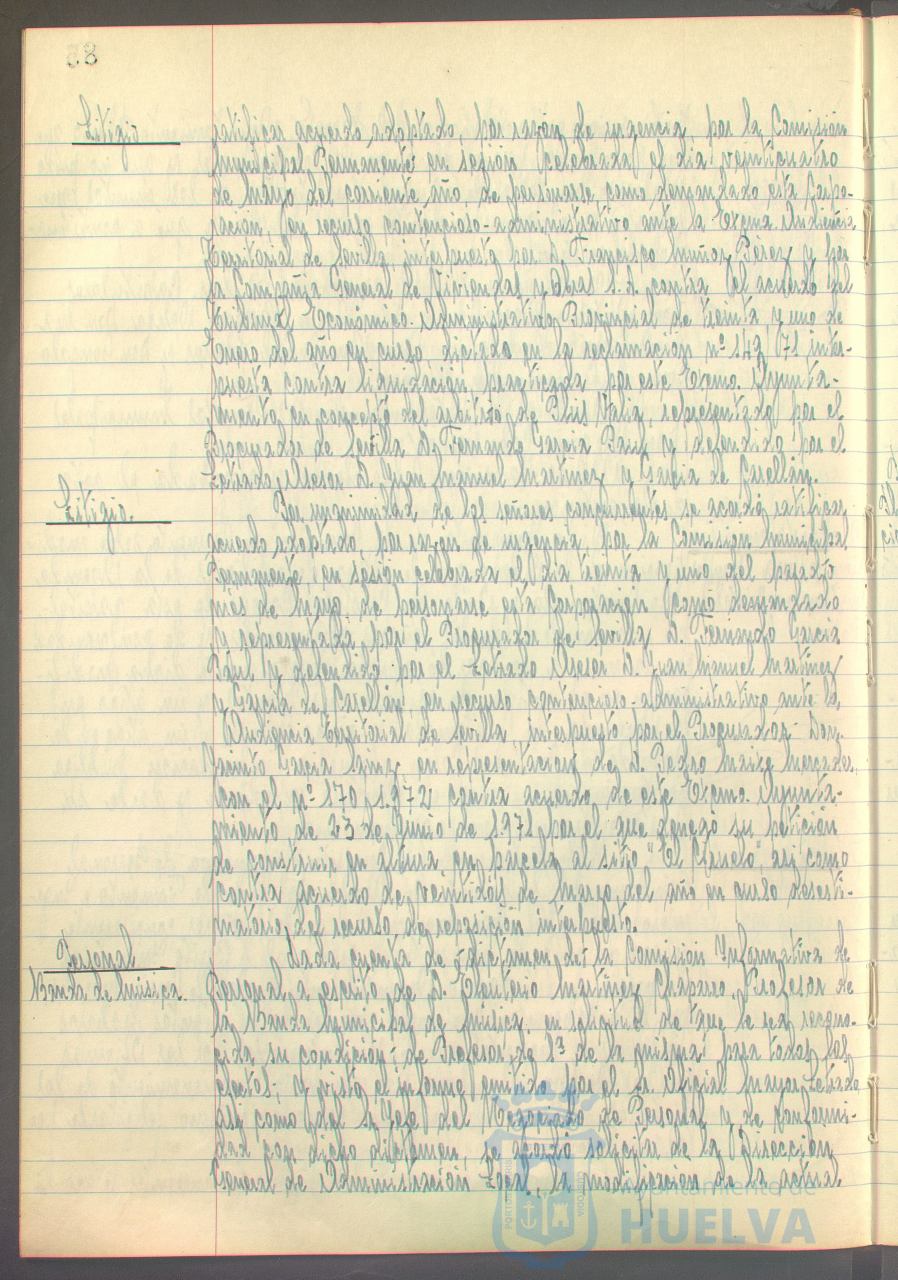 85
Litigio
ratificar acuerdo adoptado, por razón de urgencia, por la Comisión
Municipal Permanente en sesión celebrada el día veinticuatro
de mayo del corriente año, de personarse, como demandado esta Corpo-
ración, en recurso contencioso-administrativo ante la Excma. Audiencia
Territorial de Sevilla, interpuesto por D. Francisco Muñoz Pérez y por
la Compañía General de Viviendas y Obras S.A. contra el acuerdo del
Tribunal Económico-Administrativo Provincial de treinta y uno de
Enero del año en curso, dictado en la reclamación nº 149/71 inter-
puesta contra liquidación practicada por este Excmo. Ayunta-
miento, en concepto del arbitrio de Plus Valía, representado por el
Procurador de Sevilla D. Fernando García Paul y defendido por el
Letrado Asesor D. Juan Manuel Martínez y García de Casellán.
Litigio.
Por unanimidad de los señores concurrentes se acordó ratificar
acuerdo adoptado, por razón de urgencia, por la Comisión Municipal
Permanente en sesión celebrada el día treinta y uno del pasado
mes de Mayo, de personarse esta Corporación como demandado
y representada por el Procurador de Sevilla D. Fernando García
Paul y defendido por el Letrado Asesor D. Juan Manuel Martínez
y García de Casellán, en recurso contencioso-administrativo ante la
Audiencia Territorial de Sevilla, interpuesto por el Procurador Don
García en representación de D. Pedro Mercader,
con el nº 170/1.972, contra acuerdo de este Excmo. Ayunta-
miento de 23 de Junio de 1.971 por el que denegó su petición
de construir en altura en parcela al sitio "El", así como
contra acuerdo de veintidós de Marzo del año en curso desesti-
matorio del recurso de reposición interpuesto.
Personal
Banda de Música.
Dada cuenta de dictamen de la Comisión Informativa de
Personal a escrito de D. Eleuterio Martínez Chaparro, Profesor de
la Banda Municipal de Música, en solicitud de que le sea recono-
cida su condición de Profesor de 1ª de la misma para todos los
efectos; y visto el informe emitido por el Sr. Oficial Mayor Letrado
así como del Sr. Jefe del Negociado de Personal y de conformi-
dad con dicho dictamen, se acordó solicitar de la Dirección
General de Administración Local, la modificación de la actual
Ayuntamiento de
HUELVA